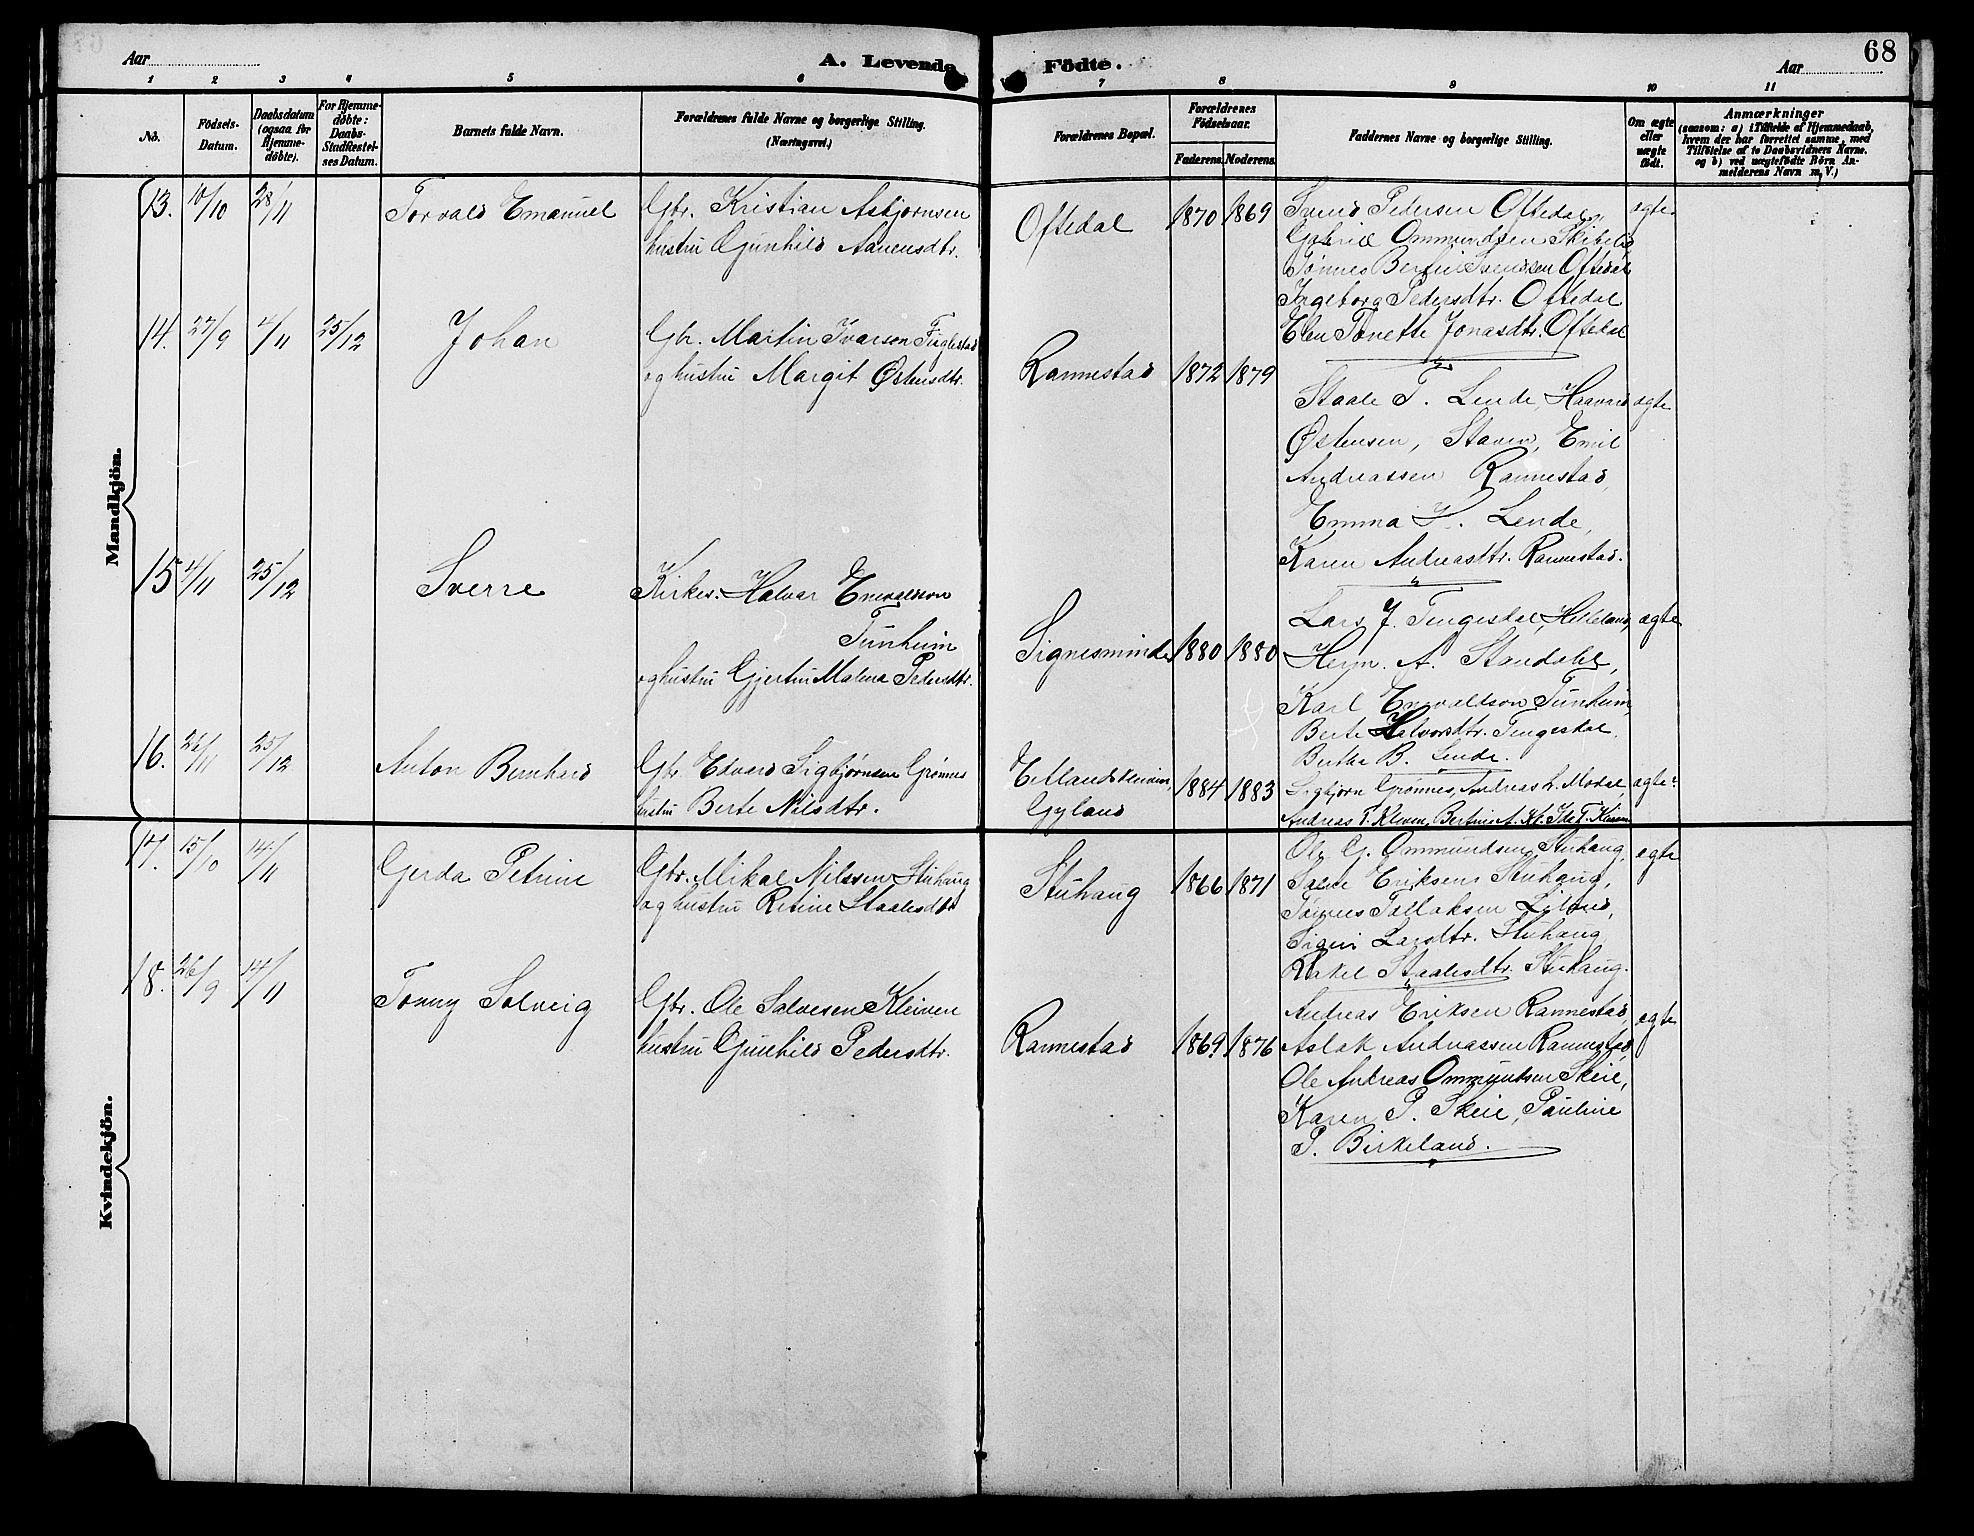 68
Aar
A. Levende
Födte.
Aar
1 2 3 4 5 6 7 8 9 10 11
No.
Födsels-
Datum.
Daabsdatum
(ogsaa for
Hjemme-
döbte).
For Hjemme-
döbte:
Daabs-
Stadfæstel-
ses Datum.
Barnets fulde Navn.
Forældrenes fulde Navne og borgerlige Stilling.
(Næringsvei.)
Forældrenes Bopæl.
Forældrenes
Födselsaar.
Faderens. Moderens.
Faddernes Navne og borgerlige Stilling.
Om ægte
eller
uægte
födt.
Anmærkninger
(saasom: a) i Tilfælde af Hjemmedaab,
hvem der har forrettet samme, med
Tilföielse af to Daabsvidners Navne.
og b) ved uægtefödte Börn An-
melderens Navn m. V.)
Mandkjön.
13. 10/10 28/11 Torvald Emanuel
Gbr. Kristian Asbjornsen
hustru Gunhild Aanensdtr.
Oftedal 1870 1869
Svend Pedersen Oftedal,
Gabriel Ommundsen
Tønnes Bertin Svendsen Oftedal
Ingeborg Pedersdtr. Oftedal
Elen Tonette Jonasdtr. Oftedal
ægte
14. 27/9 4/11 25/12 Johan
Gbr. Martin Ivarsen
og hustru Margit Østensdtr.
Rannestad 1872 1879
Staale T. Lende, Haavard
Østensen, Emil
Andreassen Rannestad,
Emma K. Lende,
Karen Andreasdtr. Rannestad.
ægte
15 4/11 25/12 Sverre
Kirkes. Halvar Enevaldson
Tunheim
og hustru Gjertin Malena Pedersdtr.
Signesminde 1880 1880
Lars J. Tengesdal, Helleland,
A. Standahl,
Karl Enevaldson Tunheim,
Berte Halvorsdtr. Tengesdal.
Berthe B. Lende.
ægte
16. 26/11 25/12 Anton Bernhard
Gbr. Edvard Sigbjørnsen Grønnes
hustru Berte Nilsdtr.
Gyland 1884 1883
Sigbjørn Grønnes, Andreas L. Modal,
Andreas T. Kleven, Bertine A. Kl. Ida T. Kleven
ægte
Kvindekjön.
17. 15/10 14/11 Gerda Petrine
Gbr. Mikal Nilssen Stuhaug
og hustru Retine Staalesdtr
Stuhaug 1866 1871
Ole G. Ommundsen Stuhaug,
Salve Eriksen Stuhaug,
Tønnes Tallaksen
Signi Larsdtr. Stuhaug
Rakel Staalesdtr. Stuhaug.
ægte
18. 26/9 14/11 Tonny Solveig
Gbr. Ole Salvesen Kleiven
hustru Gunhild Pedersdtr.
Rannestad 1869 1876
Andreas Eriksen Rannestad,
Aslak Andreassen Rannestad
Ole Andreas Ommundsen Skeie,
Karen P. Skeie, Pauline
P. Birkeland.
ægte